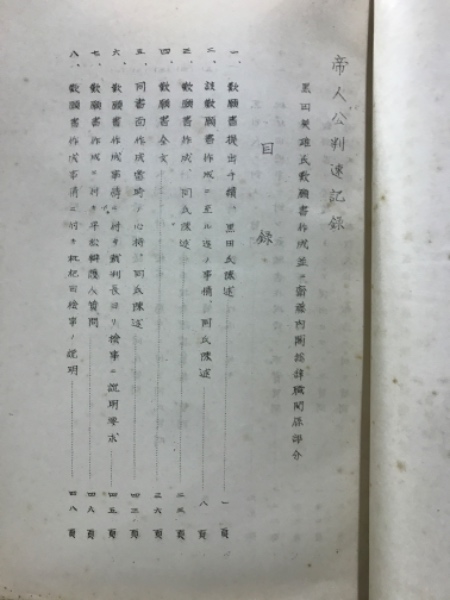 帝人公判速記録
黒田英雄氏歎願書作成並ニ斎藤内閣総辞職関係部分
目録
一、歎願書提出手續、黒田氏陳述 一頁
二、該歎願書作成ニ至ル迄ノ事情、同氏陳述 八頁
三、歎願書作成、同氏陳述 二三頁
四、歎願書全文 三六頁
五、同書面作成當時ノ心持、同氏陳述 四三頁
六、歎願書作成事情ニ付キ裁判長ヨリ検事ニ説明要求 四五頁
七、歎願書作成ニ付キ平松辯護人質問 四六頁
八、歎願書作成事情ニ付キ枇杷田検事ノ説明 四八頁